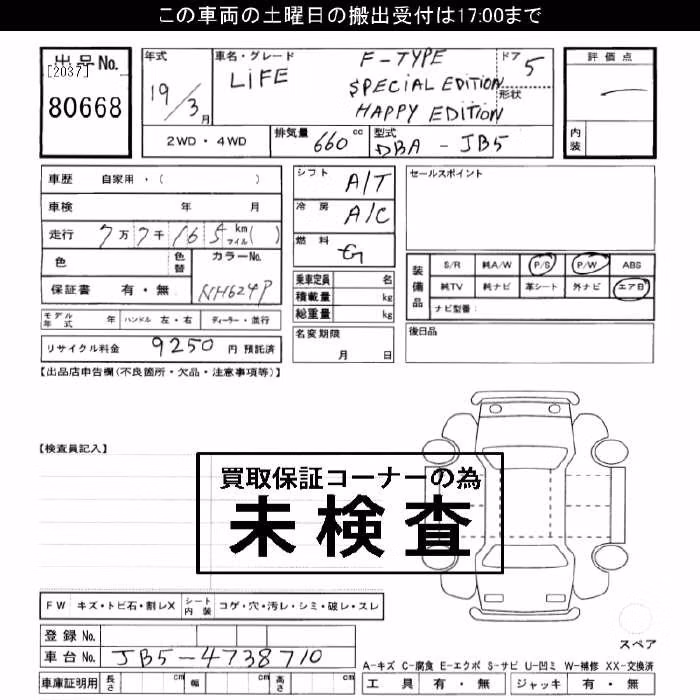 この車両の土曜日の搬出受付は17:00まで
出品No.
[2037]
80668
年式
19/3月
車名・グレード
LiFE
F-TYPE
SPECIAL EDITION
HAPPY EDITION
ドア 5
形状
評価点
内装
2WD・4WD
排気量 660 cc
型式 DBA - JB5
車歴 自家用・( )
車検 年 月
走行 7万7千165 km マイル( )
色
色替
カラーNo.
NH624P
保証書 有・無
モデル年式 年
ハンドル 左・右
ディーラー・並行
リサイクル料金 9250 円 預託済
シフト A/T
冷房 A/C
燃料 G
乗車定員 名
積載量 kg
総重量 kg
名変期限
月 日
セールスポイント
装備品
S/R 純A/W P/S P/W ABS
純TV 純ナビ 革シート 外ナビ エアB
ナビ型番:
後日品
【出品店申告欄(不良箇所・欠品・注意事項等)】
【検査員記入】
買取保証コーナーの為
未検査
FW キズ・トビ石・割レX
シート内装 コゲ・穴・汚レ・シミ・破レ・スレ
登録No.
車台No. JB5-4738710
車庫証明用 長さ cm 幅 cm 高さ cm
スペア
A-キズ C-腐食 E-エクボ S-サビ U-凹ミ W-補修 XX-交換済
工具 有・無 ジャッキ 有・無